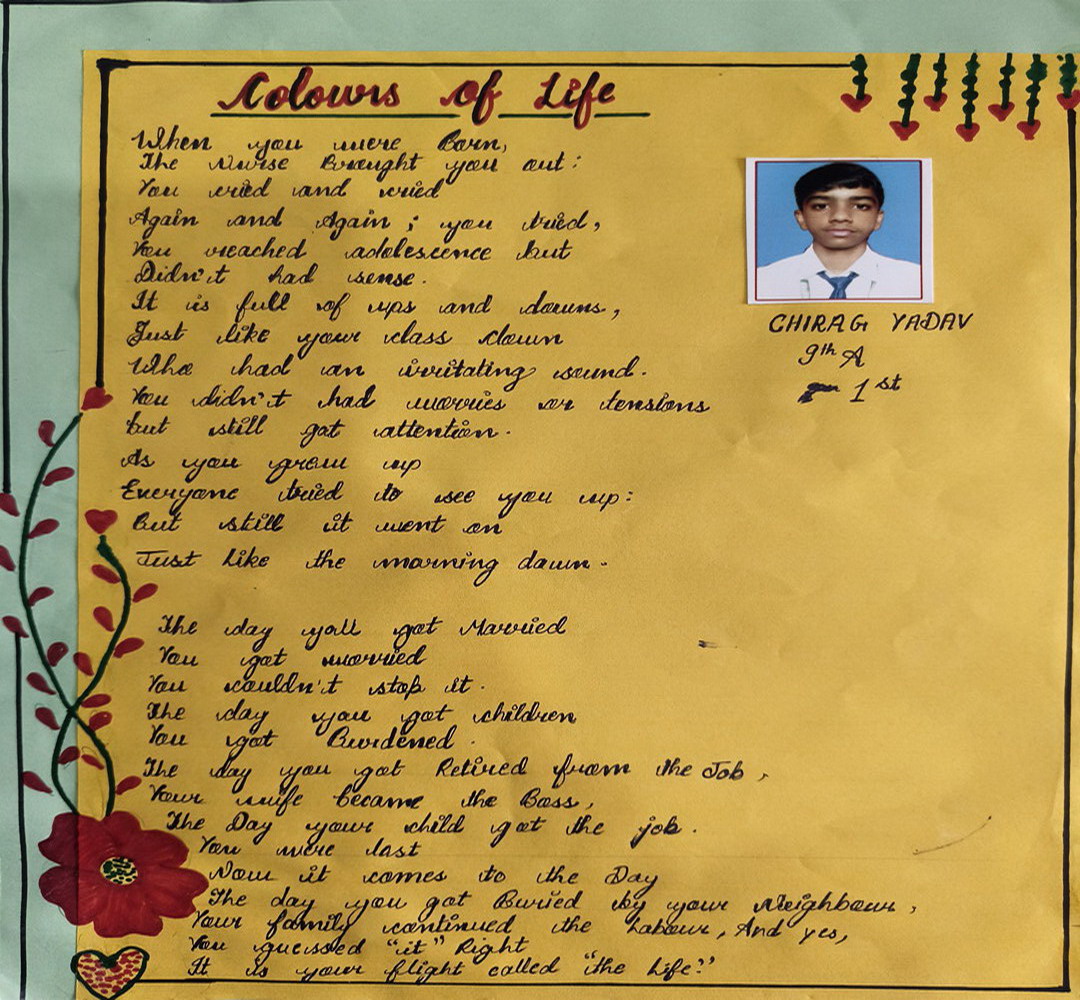 Colours of Life
When you were Born,
The Nurse Brought you out:
You cried and cried
Again and Again ; you tried,
You reached adolescence but
Didn't had sense.
It is full of ups and downs,
Just like your class clown
Who had an irritating sound.
You didn't had worries or tensions
but still got attention.
As you grow up
Everyone tried to see you up:
But still it went on
Just like the morning dawn.
The day y'all got Married
You got worried
You couldn't stop it.
The day you got children
You got Burdened.
The day you got Retired from the Job,
Your wife became the Boss,
The Day your child got the job.
You were last
Now it comes to the Day
The day you got Buried by your Neighbour,
Your family continued the Labour, And yes,
You guessed "it" Right
It is your flight called "the Life."
CHIRAG YADAV
9th A
1st